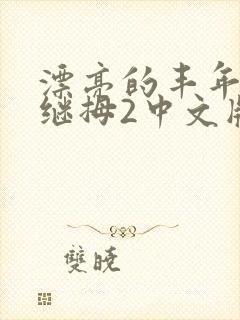 漂亮的丰年
继拇2中文
雙晓